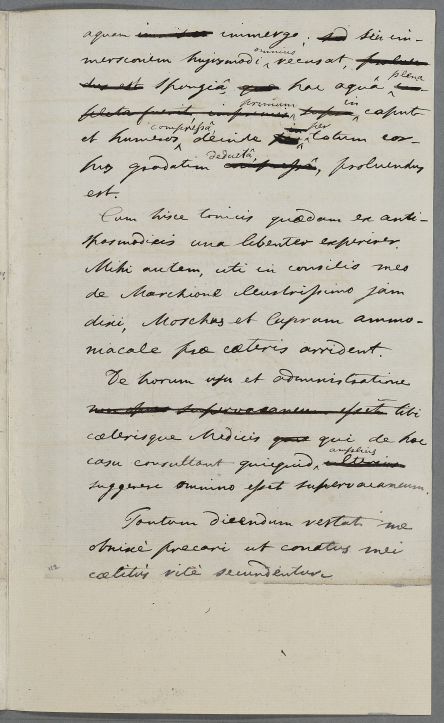 aquam immergo. Sin im-
mersionem hujusmodi omnino recusat,
Spongiâ, hac aquâ plena
primum in caput
et humeros compressâ, deinde per totum cor-
pus gradatim deductâ, proluendus
est.
Cum hisce tonicis quædam ex anti-
spasmodicis una libenter experirer.
Mihi autem, uti in consilio meo
de Marchione Illustrissimo jam
dixi, Moschus et Cuprum ammo-
niacale præ cæteris arrident.
De horum usu et administratione
non supervacaneum esset tibi
cæterisque Medicis qui de hac
casu consultant quicquid amplius
suggerere omnino esset supervacaneum.
Tantum dicendum restat me
obnixè precari ut conatus mei
cælitùs ritè secundentur.